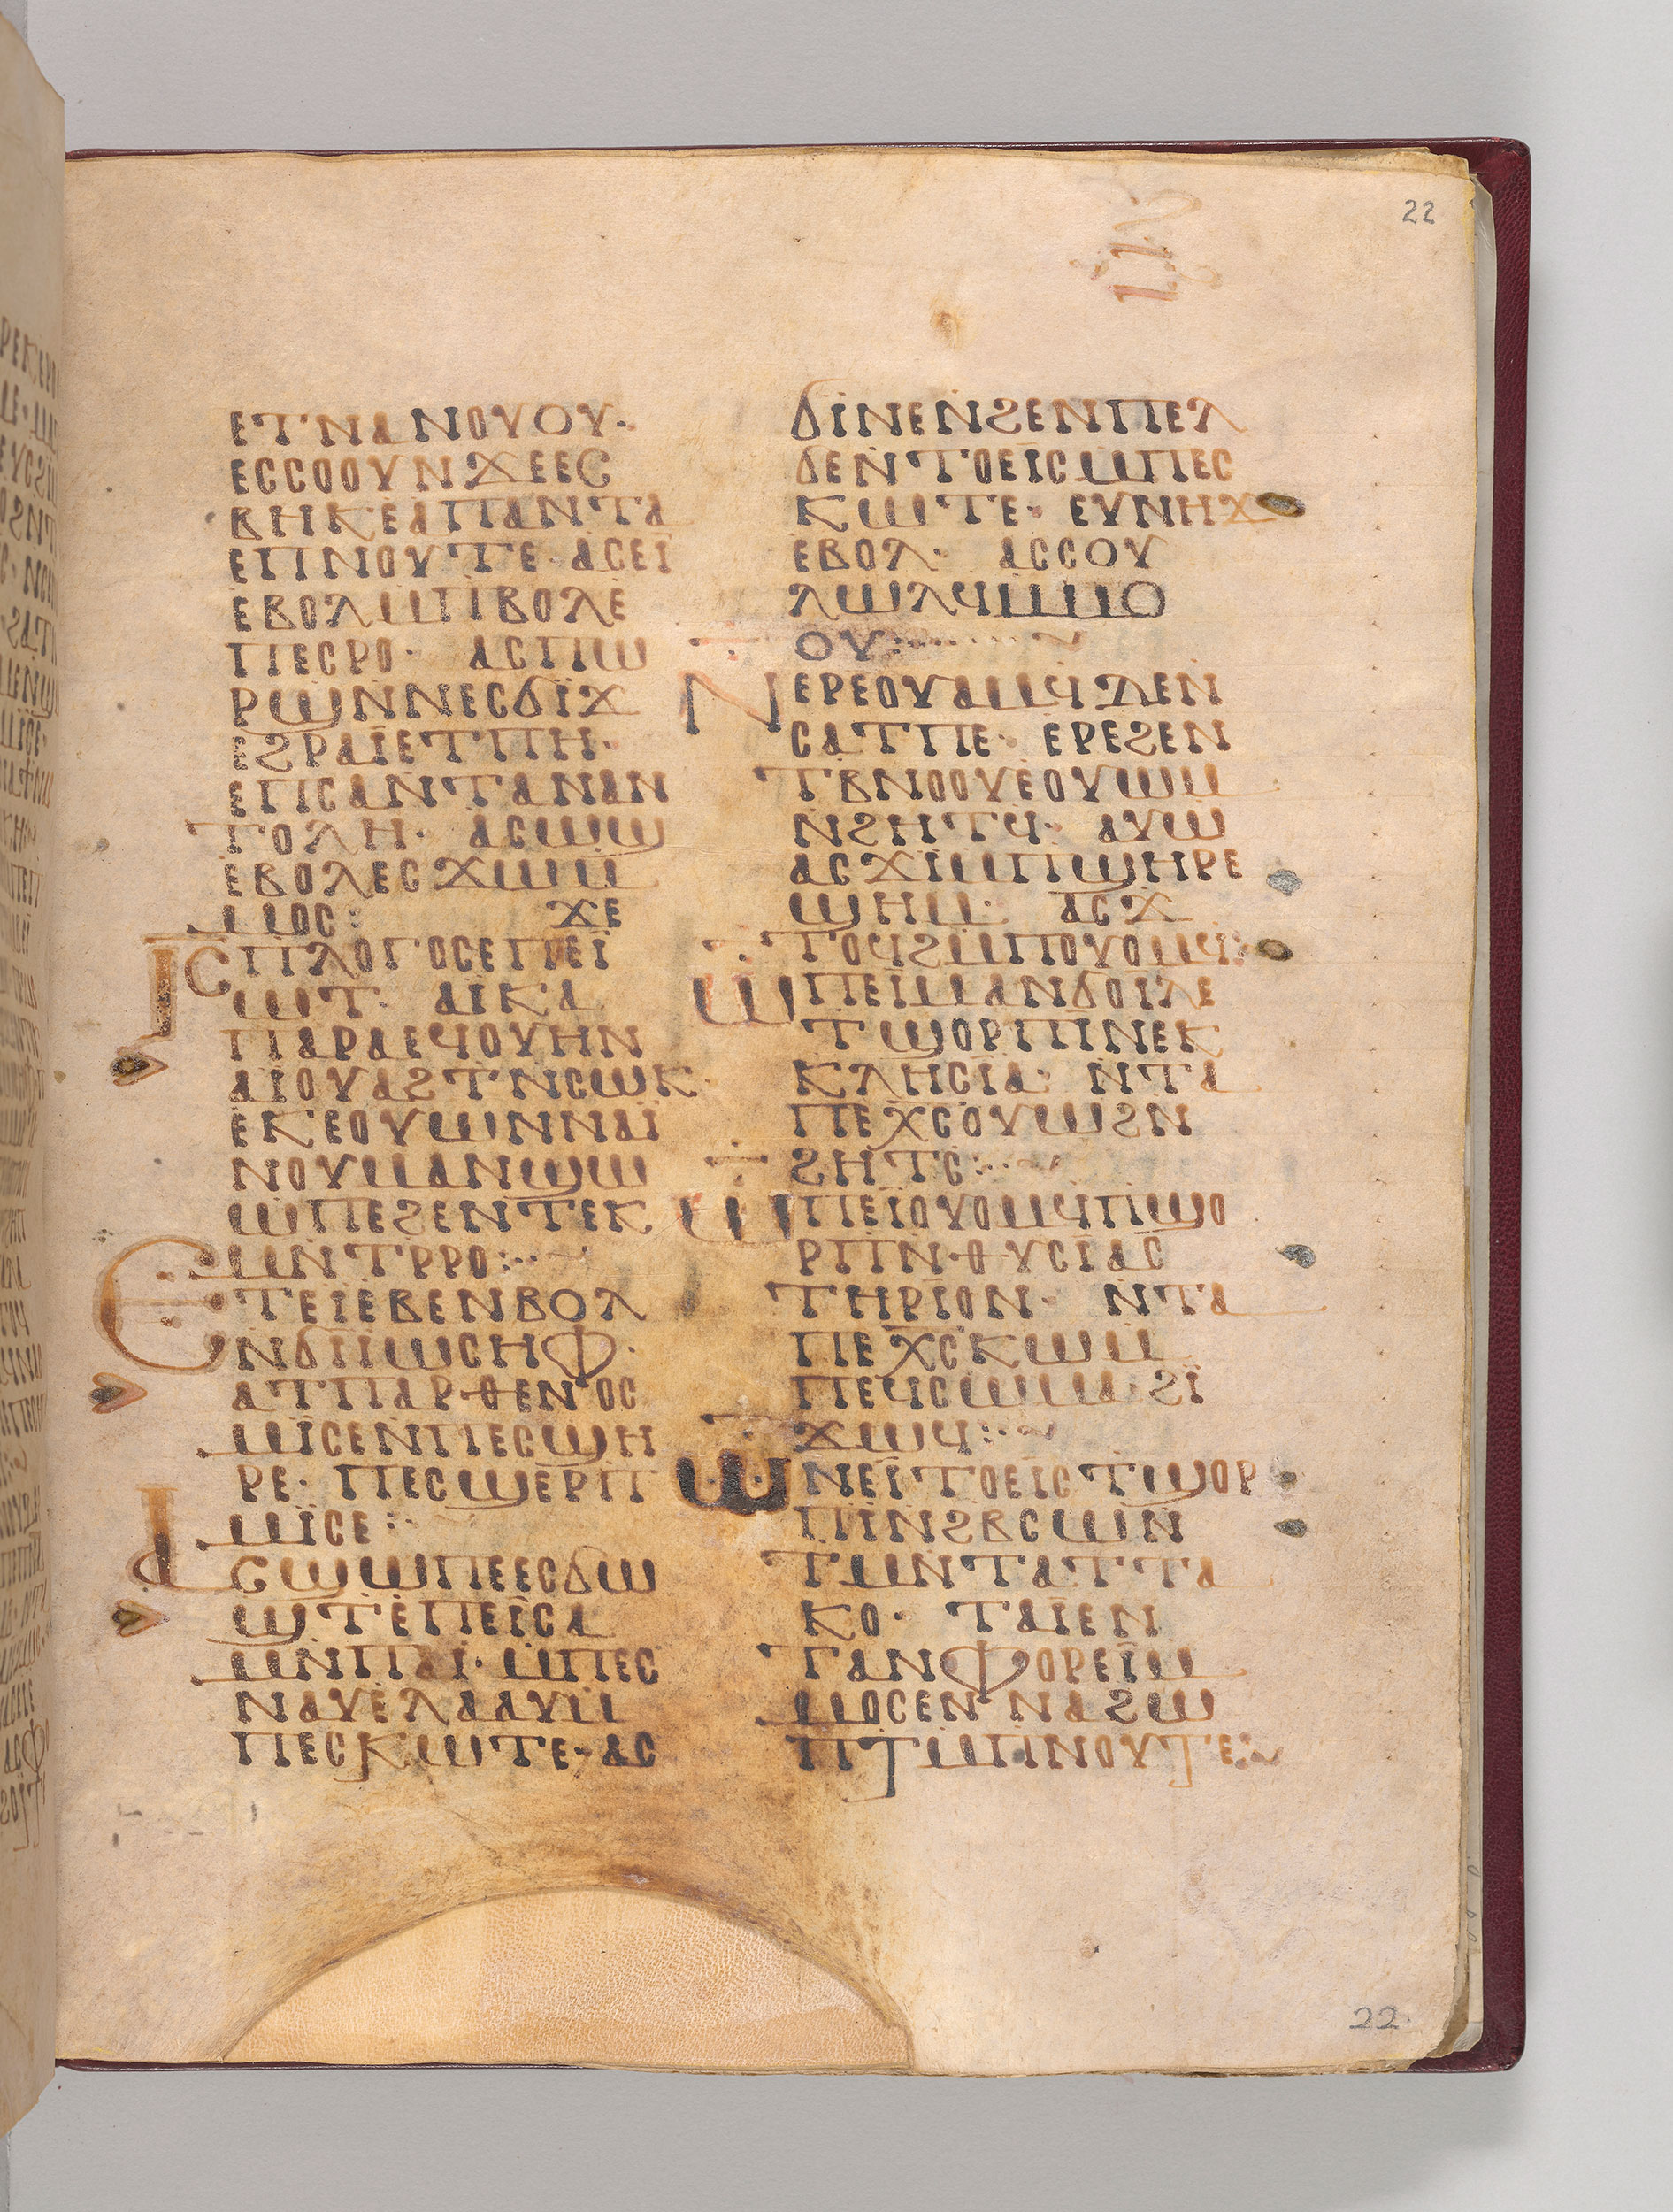 22
ⲉⲧⲛⲁⲛⲟⲩⲟⲩ·
ⲉⲥⲥⲟⲟⲩⲛϫⲉⲉⲥ
ⲃⲏⲕⲉⲁⲡⲁⲛⲧⲁ
ⲉⲡⲛⲟⲩⲧⲉ· ⲁⲥⲉⲓ
ⲉⲃⲟⲗⲙⲡⲃⲟⲗⲉ
ⲡⲉⲥⲣⲟ· ⲁⲥⲡⲱ
ⲣϣⲛⲛⲉⲥϭⲓϫ
ⲉϩⲣⲁⲓⲉⲧⲡⲏ·
ⲉⲡⲥⲁⲛⲧⲁⲛⲁⲛ
ⲧⲟⲗⲏ· ⲁⲥⲱϣ
ⲉⲃⲟⲗⲉⲥϫⲱⲙ
ⲙⲟⲥ: ϫⲉ
ⲓⲥⲡⲗⲟⲅⲟⲥⲉⲡⲉⲓ
ⲱⲧ· ⲁⲓⲕⲁ
ⲡⲁⲣⲁⲉϥⲟⲩⲏⲛ
ⲁⲓⲟⲩⲁϩⲧⲛⲥⲱⲕ·
ⲉⲕⲉⲟⲩⲱⲛⲛⲁⲓ
ⲛⲟⲩⲙⲁⲛϣⲱ
ⲱⲡⲉϩⲉⲛⲧⲉⲕ
ⲙⲛⲧⲣⲣⲟ:··~
ⲉⲧⲉⲓⲉⲃⲉⲛⲃⲟⲗ
ⲛϭⲓⲓⲱⲥⲏⲫ·
ⲁⲧⲡⲁⲣⲑⲉⲛⲟⲥ
ⲙⲓⲥⲉⲛⲡⲉⲥϣⲏ
ⲣⲉ· ⲡⲉⲥϣⲉⲣⲡ
ⲙⲓⲥⲉ:·
ⲁⲥϣⲱⲡⲉⲉⲥϭⲱ
ϣⲧⲉⲡⲉⲓⲥⲁ
ⲙⲛⲡⲁⲓ· ⲙⲡⲉⲥ
ⲛⲁⲩⲉⲗⲁⲁⲩⲙ
ⲡⲉⲥⲕⲱⲧⲉ· ⲁⲥ
ϭⲓⲛⲉⲛϩⲉⲛⲡⲉⲗ
ϭⲉⲛⲧⲟⲉⲓⲥⲙⲡⲉⲥ
ⲕⲱⲧⲉ· ⲉⲩⲛⲏϫ
ⲉⲃⲟⲗ· ⲁⲥⲥⲟⲩ
ⲗⲱⲗϥⲙⲙⲟ
ⲟⲩ:·····~
ⲛⲉⲣⲉⲟⲩⲁⲙϥϫⲉⲛ
ⲥⲁⲧⲡⲉ· ⲉⲣⲉϩⲉⲛ
ⲧⲃⲛⲟⲟⲩⲉⲟⲩⲱⲙ
ⲛϩⲏⲧϥ· ⲁⲩⲱ
ⲁⲥϫⲓⲙⲡϣⲏⲣⲉ
ϣⲏⲙ· ⲁⲥϫ
ⲧⲟϥϩⲙⲡⲟⲩⲟⲙϥ:
ⲱⲡⲉⲓⲙⲁⲛϭⲟⲓⲗⲉ
ⲧϣⲟⲣⲡⲛⲉⲕ
ⲕⲗⲏⲥⲓⲁ· ⲛⲧⲁ
ⲡⲉⲭⲥⲟⲩⲱϩⲛ
ϩⲏⲧⲥ:··~
ⲱⲡⲉⲓⲟⲩⲟⲙϥⲡϣⲟ
ⲣⲡⲛ·ⲑⲩⲥⲓⲁⲥ
ⲧⲏⲣⲓⲟⲛ· ⲛⲧⲁ
ⲡⲉⲭⲥⲕⲱⲙ
ⲡⲉϥⲥⲱⲙⲁϩⲓ
ϫⲱϥ:·~
ⲱⲛⲉⲓⲧⲟⲉⲓⲥⲧϣⲟⲣ
ⲡⲛϩⲃⲥⲱⲛ
ⲧⲙⲛⲧⲁⲧⲧⲁ
ⲕⲟ· ⲧⲁⲓⲉⲛ
ⲧⲁⲛⲫⲟⲣⲉⲓⲙ
ⲙⲟⲥⲉⲛⲛⲁϩⲱ
ⲡⲧⲙⲡⲛⲟⲩⲧⲉ:~
22